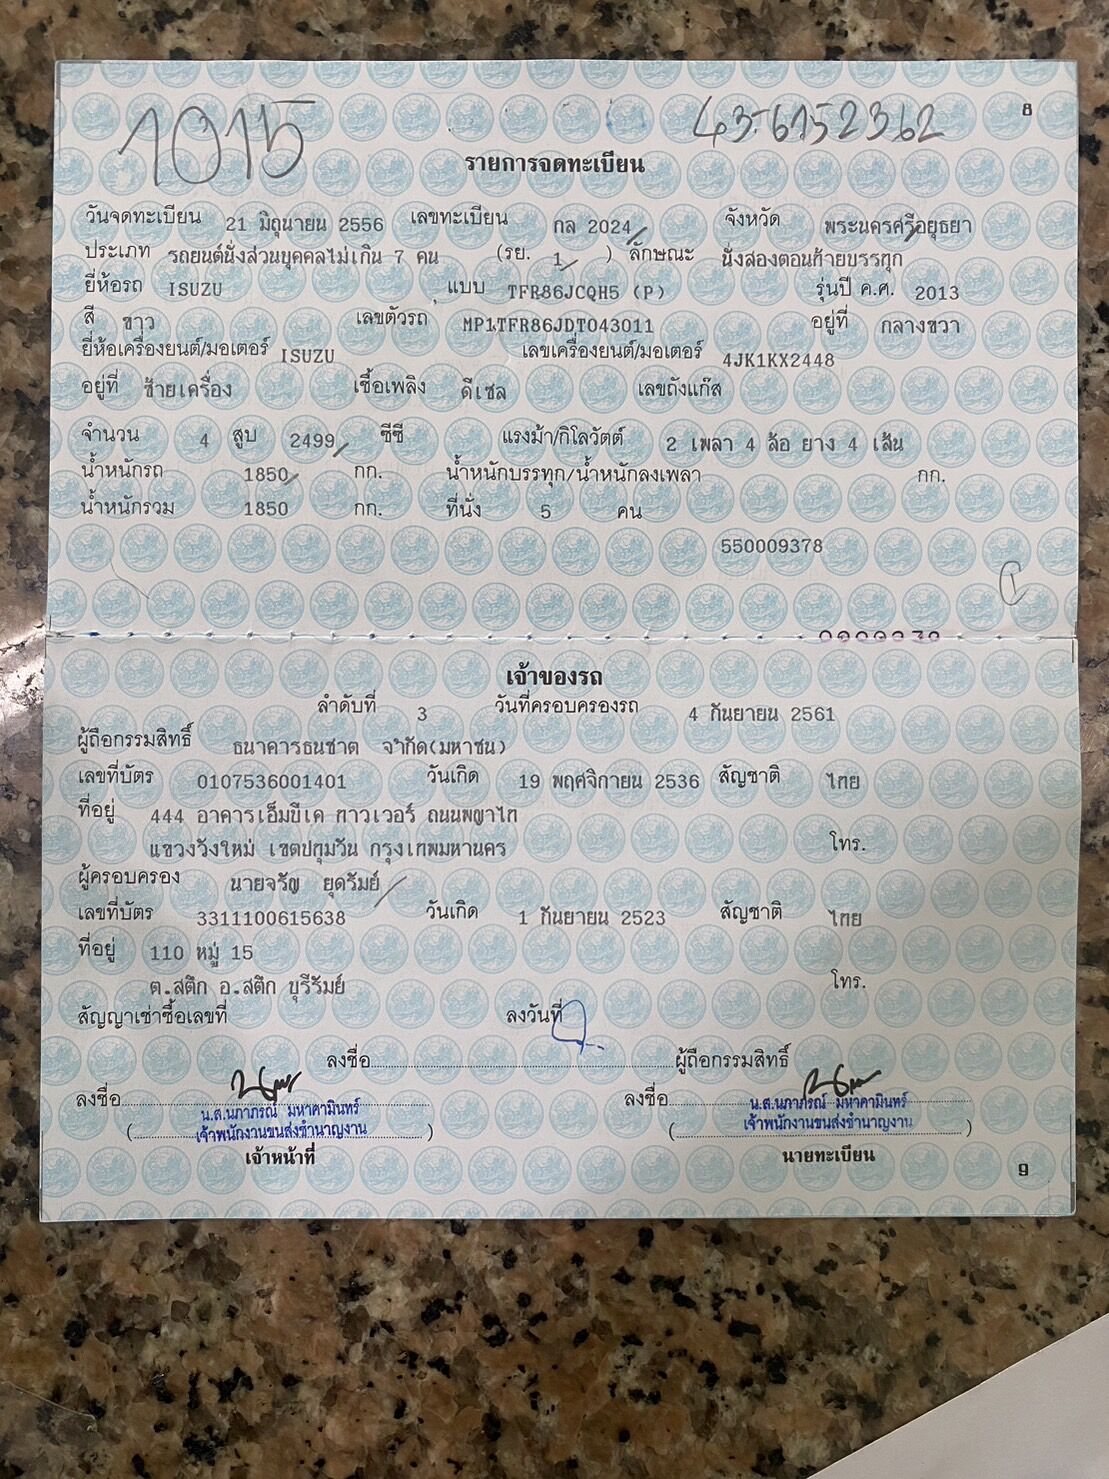 8
1015 43-6152362
รายการจดทะเบียน
วันจดทะเบียน 21 มิถุนายน 2556 เลขทะเบียน กล 2024 จังหวัด พระนครศรีอยุธยา
ประเภท รถยนต์นั่งส่วนบุคคลไม่เกิน 7 คน (รย. 1 ) ลักษณะ นั่งสองตอนท้ายบรรทุก
ยี่ห้อรถ ISUZU แบบ TFR86JCQH5 (P) รุ่นปี ค.ศ. 2013
สี ขาว เลขตัวรถ MP1TFR86JDT043011 อยู่ที่ กลางขวา
ยี่ห้อเครื่องยนต์/มอเตอร์ ISUZU เลขเครื่องยนต์/มอเตอร์ 4JK1KX2448
อยู่ที่ ซ้ายเครื่อง เชื้อเพลิง ดีเซล เลขถังแก๊ส
จำนวน 4 สูบ 2499 ซีซี แรงม้า/กิโลวัตต์ 2 เพลา 4 ล้อ ยาง 4 เส้น
น้ำหนักรถ 1850 กก. น้ำหนักบรรทุก/น้ำหนักลงเพลา กก.
น้ำหนักรวม 1850 กก. ที่นั่ง 5 คน
550009378
เจ้าของรถ
ลำดับที่ 3 วันที่ครอบครองรถ 4 กันยายน 2561
ผู้ถือกรรมสิทธิ์ ธนาคารธนชาต จำกัด(มหาชน)
เลขที่บัตร 0107536001401 วันเกิด 19 พฤศจิกายน 2536 สัญชาติ ไทย
ที่อยู่ 444 อาคารเอ็มบีเค ทาวเวอร์ ถนนพญาไท
แขวงวังใหม่ เขตปทุมวัน กรุงเทพมหานคร โทร.
ผู้ครอบครอง นายจรัญ ยุดรัมย์
เลขที่บัตร 3311100615638 วันเกิด 1 กันยายน 2523 สัญชาติ ไทย
ที่อยู่ 110 หมู่ 15
ต.สตึก อ.สตึก บุรีรัมย์ โทร.
สัญญาเช่าซื้อเลขที่ ลงวันที่
ลงชื่อ ผู้ถือกรรมสิทธิ์
ลงชื่อ ลงชื่อ
น.ส.นภาภรณ์ มหาคามินทร์ น.ส.นภาภรณ์ มหาคามินทร์
(เจ้าพนักงานขนส่งชำนาญงาน) (เจ้าพนักงานขนส่งชำนาญงาน)
เจ้าหน้าที่ นายทะเบียน
9